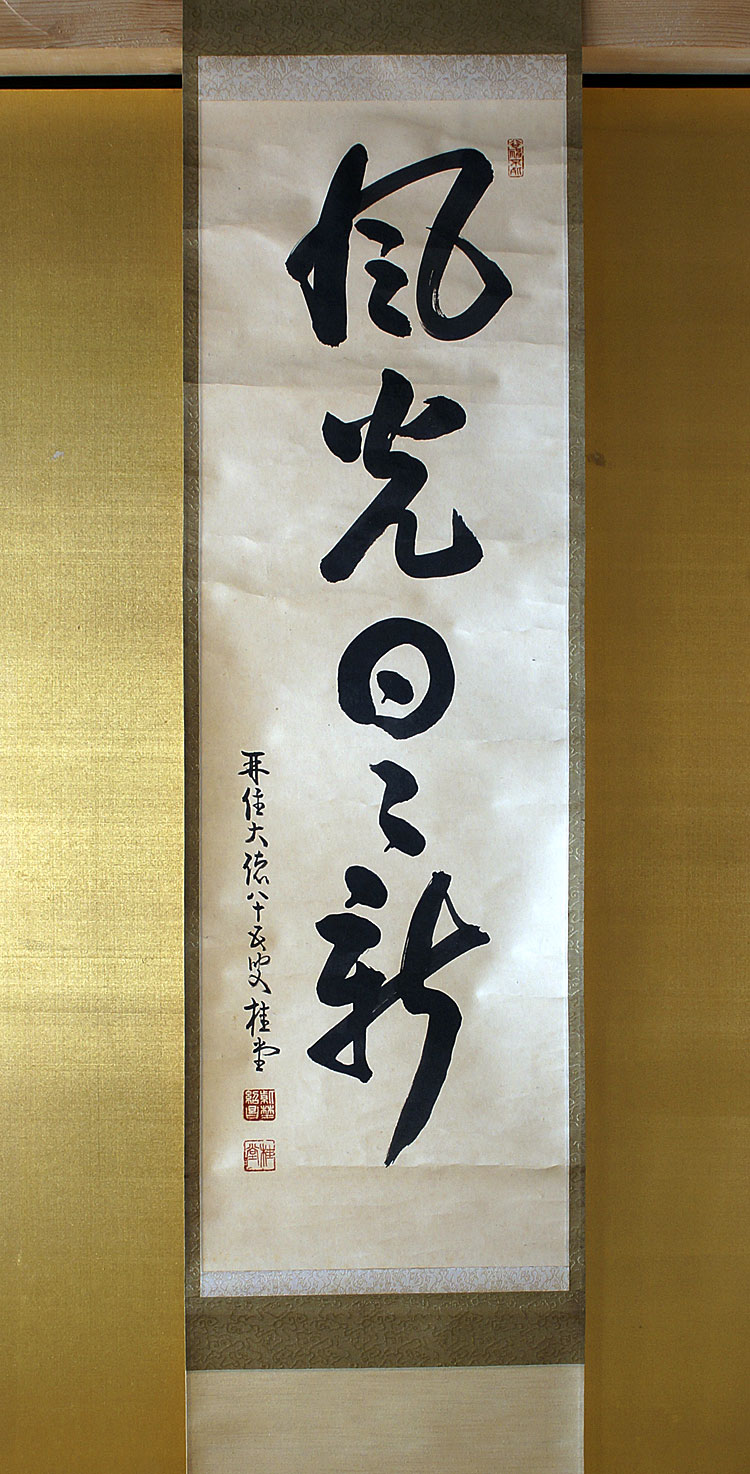 風光日々新
再住大徳八十五叟桂堂
桂堂